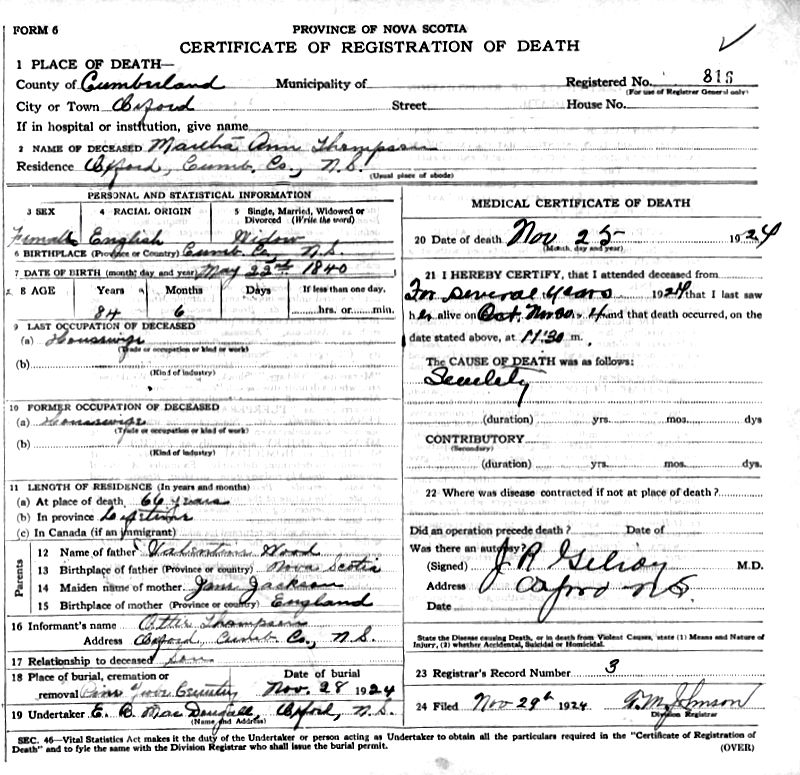 FORM 6
PROVINCE OF NOVA SCOTIA
CERTIFICATE OF REGISTRATION OF DEATH
1 PLACE OF DEATH—
County of Cumberland Municipality of Registered No. 815
(For use of Registrar General only)
City or Town Oxford Street House No.
If in hospital or institution, give name
2 NAME OF DECEASED Martha Ann Thompson
Residence Oxford, Cumb. Co., N.S.
(Usual place of abode)
PERSONAL AND STATISTICAL INFORMATION
3 SEX 4 RACIAL ORIGIN 5 Single, Married, Widowed or Divorced (Write the word)
Female English Widow
6 BIRTHPLACE (Province or Country) Cumb. Co., N.S.
7 DATE OF BIRTH (month, day and year) May 23rd 1840
8 AGE Years Months Days If less than one day,
84 6 hrs. or min.
9 LAST OCCUPATION OF DECEASED
(a) Housewife
(Trade or occupation or kind of work)
(b)
(Kind of industry)
10 FORMER OCCUPATION OF DECEASED
(a) Housewife
(Trade or occupation or kind of work)
(b)
(Kind of industry)
11 LENGTH OF RESIDENCE (In years and months)
(a) At place of death 66 years
(b) In province Lifetime
(c) In Canada (if an immigrant)
Parents
12 Name of father Valentine Wood
13 Birthplace of father (Province or country) Nova Scotia
14 Maiden name of mother Jane Jackson
15 Birthplace of mother (Province or country) England
16 Informant's name Thompson
Address Oxford, Cumb. Co., N.S.
17 Relationship to deceased son
18 Place of burial, cremation or Date of burial
removal Pine Grove Cemetery Nov. 28 1924
19 Undertaker E. B. MacDougall, Oxford, N.S.
(Name and Address)
MEDICAL CERTIFICATE OF DEATH
20 Date of death Nov 25 1924
(Month, day and year)
21 I HEREBY CERTIFY, that I attended deceased from
For several years 1924 that I last saw
her alive on and that death occurred, on the
date stated above, at 11:30 m.
The CAUSE OF DEATH was as follows:
(duration) yrs. mos. dys
CONTRIBUTORY
(Secondary)
(duration) yrs. mos. dys.
22 Where was disease contracted if not at place of death?
Did an operation precede death? Date of
Was there an autopsy?
(Signed) J R Gilroy M.D.
Address Oxford N.S.
Date
State the Disease causing Death, or in death from Violent Causes, state (1) Means and Nature of
Injury, (2) whether Accidental, Suicidal or Homicidal.
23 Registrar's Record Number 3
24 Filed Nov 29th 1924 Johnson
Division Registrar
SEC. 46—Vital Statistics Act makes it the duty of the Undertaker or person acting as Undertaker to obtain all the particulars required in the "Certificate of Registration of
Death" and to fyle the same with the Division Registrar who shall issue the burial permit. (OVER)